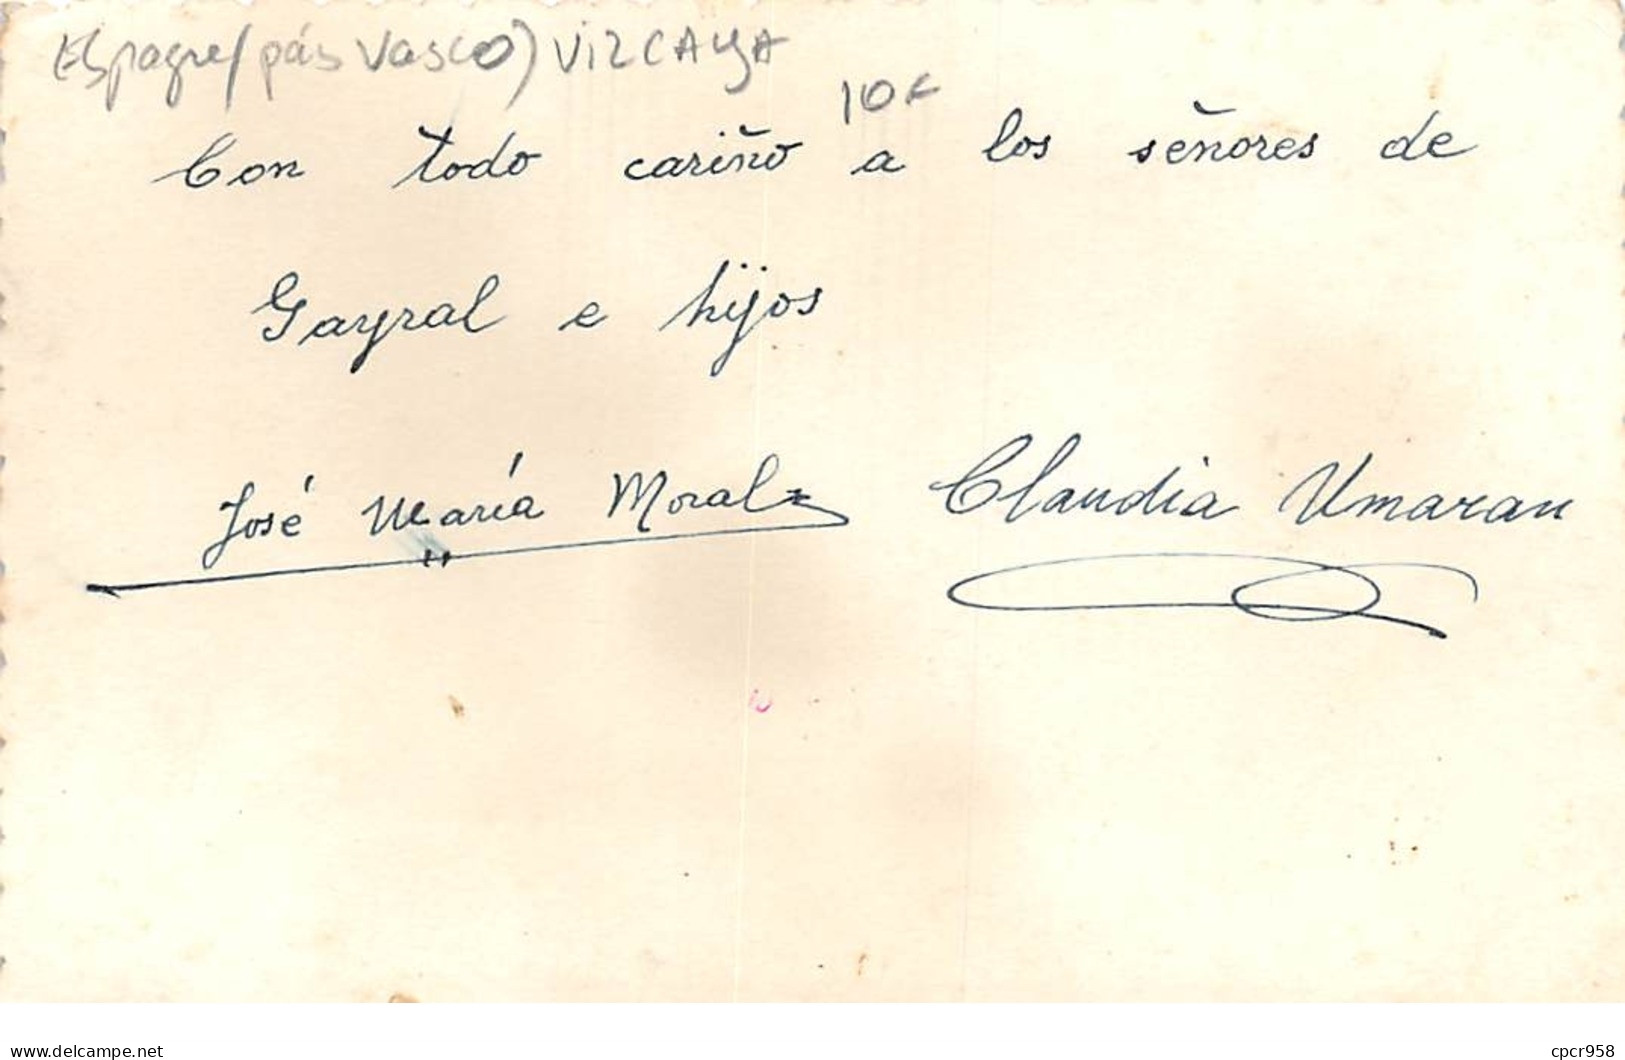 Espagne (páis Vasco) VIZCAYA
10€
Con todo cariño a los señores de
Gayral e hijos
José María Moral Claudia Umaran
delcampe.net
cpcr958